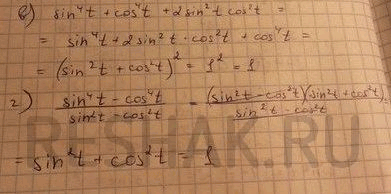 в) sin⁴t + cos⁴t + 2sin²t cos²t =
= sin⁴t + 2sin²t · cos²t + cos⁴t =
= (sin²t + cos²t)² = 1² = 1
г) (sin⁴t - cos⁴t)/(sin²t - cos²t) = (sin²t - cos²t)(sin²t + cos²t)/(sin²t - cos²t) =
= sin²t + cos²t = 1
RESHAK.RU